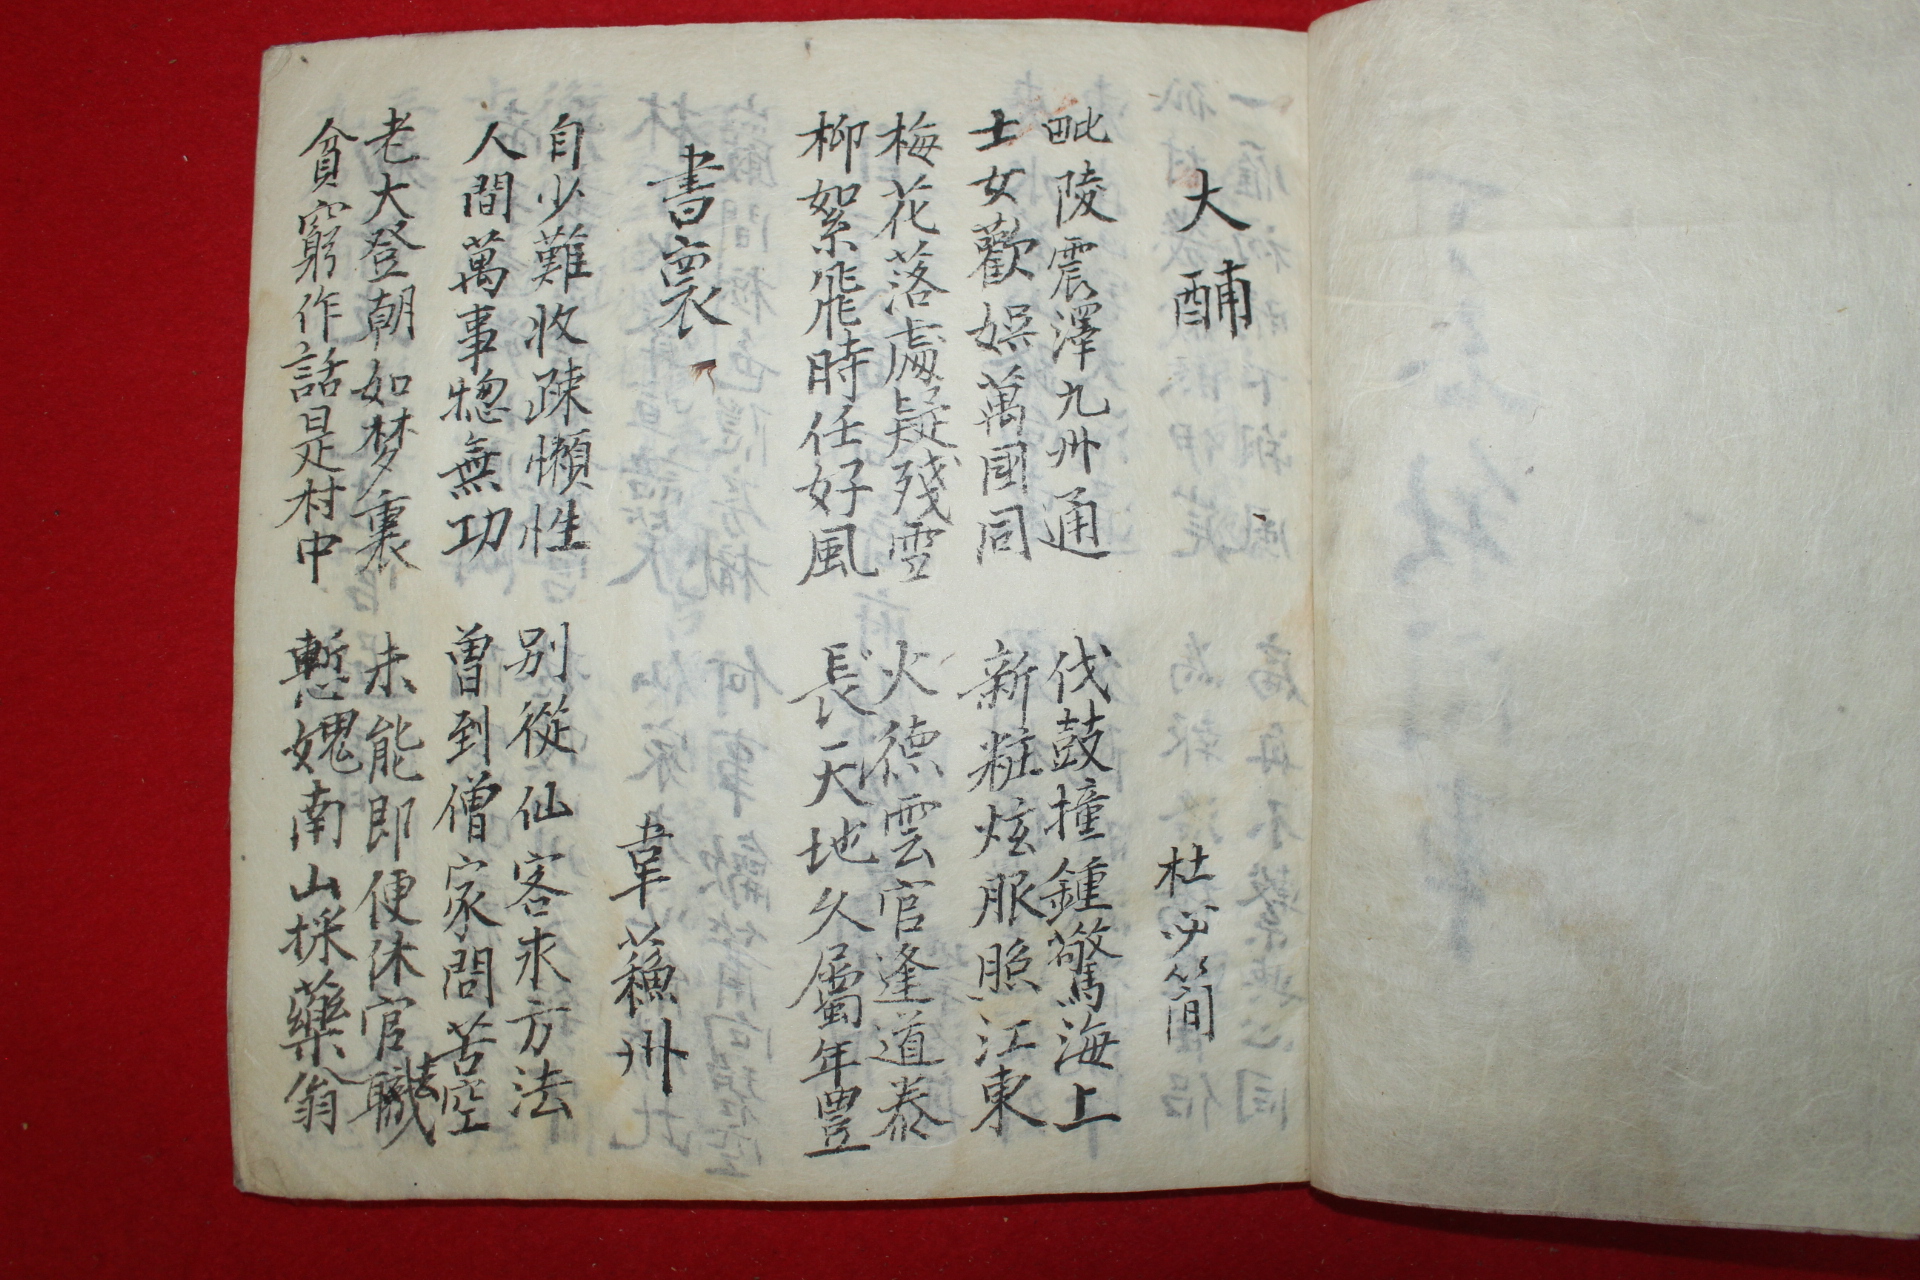 大酺
杜必簡
毗陵震澤九州通 伐鼓撞鍾驚海上
士女歡娛萬國同 新粧炫服照江東
梅花落處疑殘雪 火德雲官逢道泰
柳絮飛時任好風 長天地久屬年豊
書裏
韋蘓州
自少難收疎懶性 別從仙客求方法
人間萬事惣無功 曽到僧家問苦空
老大登朝如梦裏 未能即便休官職去
貧窮作話是村中 慙媿南山採藥翁